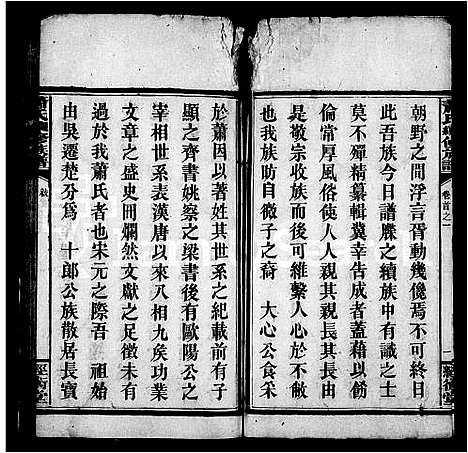 朝野之間浮言胥動幾儳焉不可終日
此吾族今日譜牒之續族中有識之士
莫不殫精纂輯冀幸告成者蓋藉以飭
倫常厚風俗使人人親其親長其長由
是敬宗收族而後可維繫人心於不敝
也我族防自微子之裔 大心公食采
於蕭因以著姓其世系之紀載前有子
顯之齊書姚察之梁書後有歐陽公之
宰相世系表漢唐以來八相九矦功業
文章之盛史冊爛然文獻之足徵未有
過於我蕭氏者也宋元之際吾 祖始
由吳遷楚分爲 十郎公族散居長寶